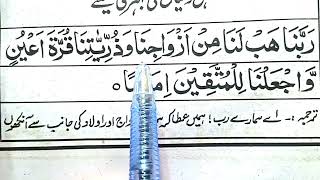 کی بہتری کیلئے
رَبَّنَا هَبْ لَنَا مِنْ اَزْوَاجِنَا وَذُرِّيّٰتِنَا قُرَّةَ اَعْيُنٍ
وَّاجْعَلْنَا لِلْمُتَّقِيْنَ اِمَامًا
ترجمہ :۔ اے ہمارے رب! ہمیں عطا کر ہماری ازواج اور اولاد کی جانب سے آنکھوں